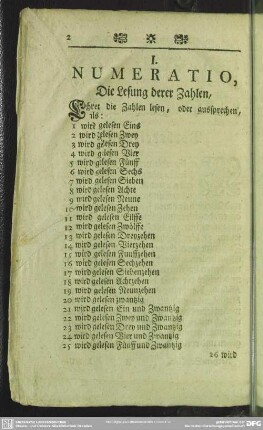 2
I.
NUMERATIO,
Die Lesung derer Zahlen,
Lehret die Zahlen lesen, oder aussprechen,
als:
1 wird gelesen Eins
2 wird gelesen Zwey
3 wird gelesen Drey
4 wird gelesen Vier
5 wird gelesen Fünff
6 wird gelesen Sechs
7 wird gelesen Sieben
8 wird gelesen Achte
9 wird gelesen Neune
10 wird gelesen Zehen
11 wird gelesen Eilffe
12 wird gelesen Zwölffe
13 wird gelesen Dreyzehen
14 wird gelesen Vierzehen
15 wird gelesen Funffzehen
16 wird gelesen Sechzehen
17 wird gelesen Siebenzehen
18 wird gelesen Achtzehen
19 wird gelesen Neunzehen
20 wird gelesen zwantzig
21 wird gelesen Ein und Zwantzig
22 wird gelesen Zwey und Zwantzig
23 wird gelesen Drey und Zwantzig
24 wird gelesen Vier und Zwantzig
25 wird gelesen Fünff und Zwantzig
26 wird